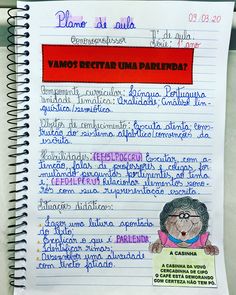 Plano de aula
09.03.20
@anonosprofessor
Nº de aula:
Série: 1º ano
VAMOS RECITAR UMA PARLENDA?
Componente curricular: Língua Portuguesa
Unidade temática: Oralidade, Análise lin-
guística/semiótica.
Objetos de conhecimento: Escuta atenta, cons-
trução do sistema alfabético/convenções da
escrita.
Habilidades: Escutar, com a-
tenção, falas de professores e colegas, for-
mulando perguntas pertinentes ao tema
e Relacionar elementos sono-
ros com sua representação escrita.
Situações didáticas:
- Fazer uma leitura apontada
do texto;
- Explicar o que é PARLENDA;
- Identificar rimas;
- Desenvolver uma atividade
com texto fatiado.
A CASINHA
A CASINHA DA VOVÓ
CERCADINHA DE CIPÓ
O CAFÉ ESTÁ DEMORANDO
COM CERTEZA NÃO TEM PÓ.